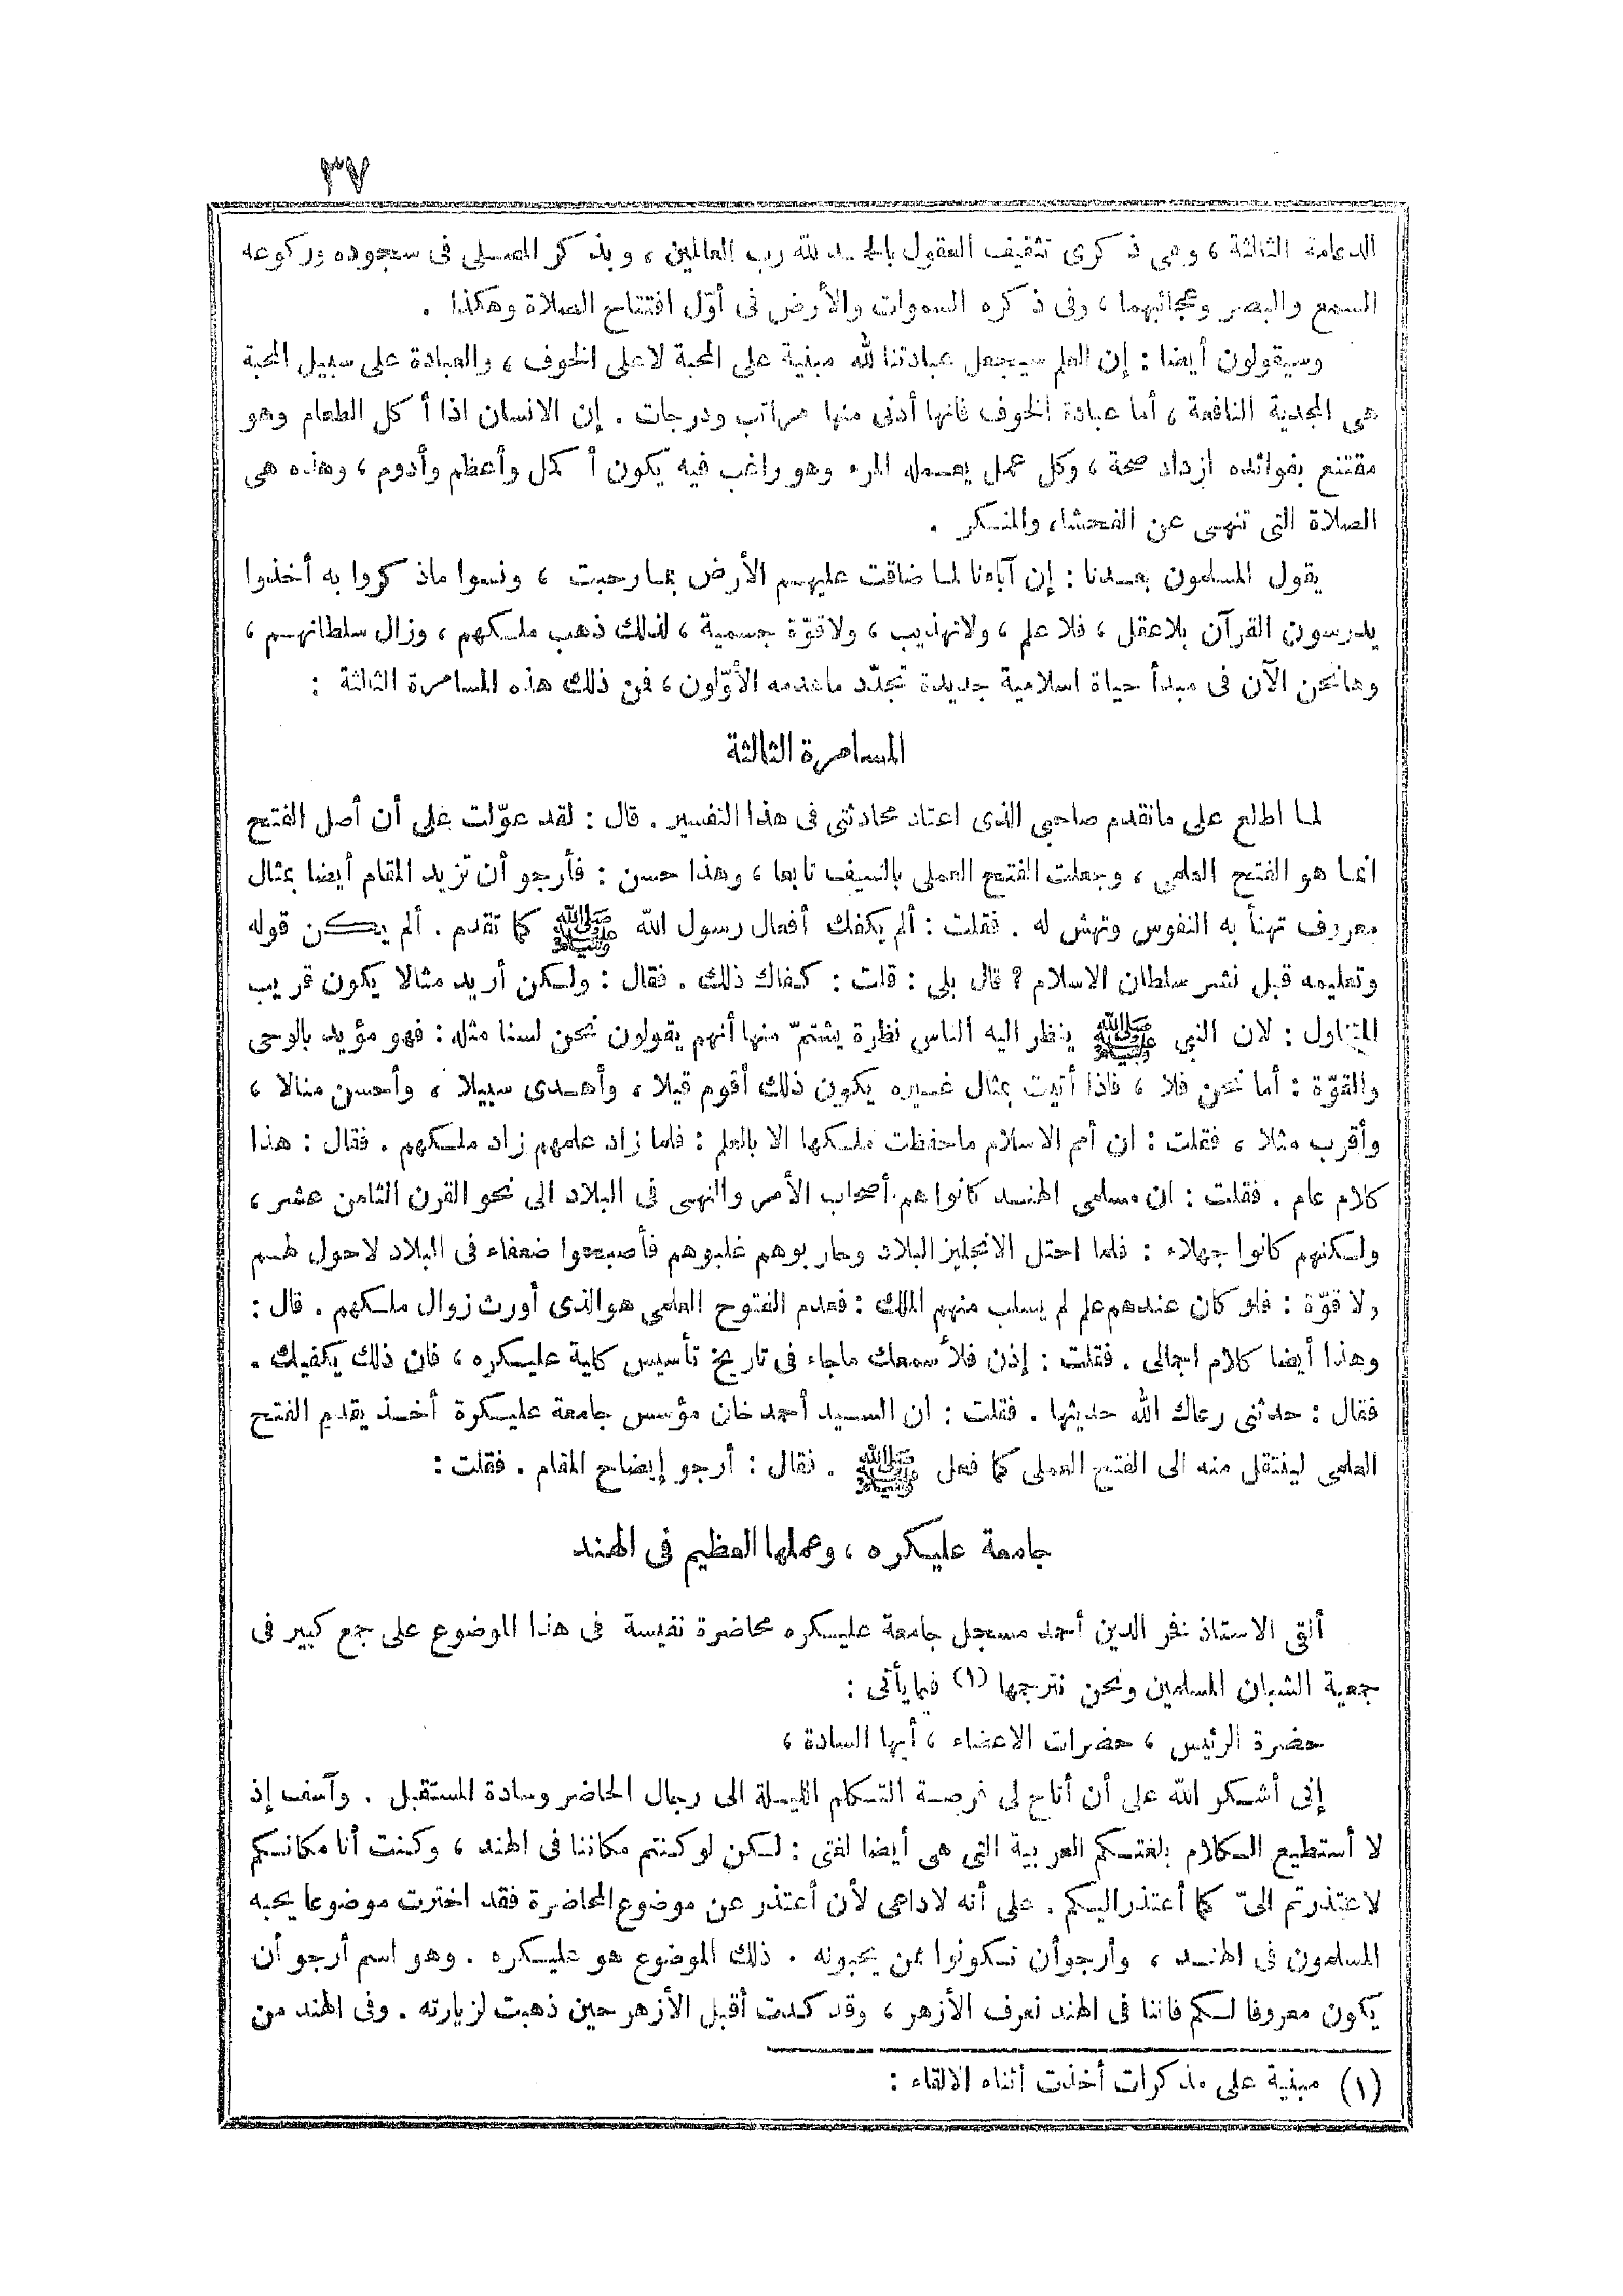 ٣٧
الدعامة الثالثة ، وهى ذكرى تثقيف العقول بالحمد لله رب العالمين ، وبذكر المصلى فى سجوده وركوعه
السمع والبصر وعجائبهما ، وفى ذكره السموات والأرض فى أوّل افتتاح الصلاة وهكذا .
وسيقولون أيضا : إن العلم سيجعل عبادتنا لله مبنية على المحبة لاعلى الخوف ، والعبادة على سبيل المحبة
هى المجدية النافعة ، أما عبادة الخوف فانها أدنى منها مراتب ودرجات . إن الانسان اذا أكل الطعام وهو
مقتنع بفوائده ازداد صحة ، وكل عمل يعمله المرء وهو راغب فيه يكون أكمل وأعظم وأدوم ، وهذه هى
الصلاة التى تنهى عن الفحشاء والمنكر .
يقول المسلمون بعدنا : إن آباءنا لما ضاقت عليهم الأرض بما رحبت ، ونسوا ماذكروا به أخذوا
يدرسون القرآن بلاعقل ، فلا علم ، ولاتهذيب ، ولاقوّة جسمية ، لذلك ذهب ملكهم ، وزال سلطانهم ،
وهانحن الآن فى مبدأ حياة اسلامية جديدة تجدّد ماهدمه الأوّلون ، فمن ذلك هذه المسامرة الثالثة :
المسامرة الثالثة
لما اطلع على ماتقدم صاحبى الذى اعتاد محادثتى فى هذا التفسير . قال : لقد عوّلت على أن أصل الفتح
انما هو الفتح العلمى ، وجعلت الفتح العملى بالسيف تابعا ، وهذا حسن : فأرجو أن تزيد المقام أيضا بمثال
معروف تهنأ به النفوس وتهش له . فقلت : ألم يكفك أفعال رسول الله ﷺ كما تقدم . ألم يكن قوله
وتعليمه قبل نشر سلطان الاسلام ؟ قال بلى : قلت : كفاك ذلك . فقال : ولكن أريد مثالا يكون قريب
المتناول : لان النبى ﷺ ينظر اليه الناس نظرة يشتمّ منها أنهم يقولون نحن لسنا مثله : فهو مؤيد بالوحى
والقوّة : أما نحن فلا ، فاذا أتيت بمثال غيره يكون ذلك أقوم قيلا ، وأهدى سبيلا ، وأحسن منالا ،
وأقرب مثلا ، فقلت : ان أمم الاسلام ماحفظت ملكها الا بالعلم : فلما زاد علمهم زاد ملكهم . فقال : هذا
كلام عام . فقلت : ان مسلمى الهند كانوا هم أصحاب الأمر والنهى فى البلاد الى نحو القرن الثامن عشر ،
ولكنهم كانوا جهلاء : فلما احتل الانجليز البلاد وحاربوهم غلبوهم فأصبحوا ضعفاء فى البلاد لاحول لهم
ولا قوّة : فلو كان عندهم علم لم يسلب منهم الملك : فعدم الفتوح العلمى هو الذى أورث زوال ملكهم . قال :
وهذا أيضا كلام اجمالى . فقلت : إذن فلأسمعك ماجاء فى تاريخ تأسيس كلية عليكره ، فان ذلك يكفيك .
فقال : حدثنى رعاك الله حديثها . فقلت : ان السيد أحمد خان مؤسس جامعة عليكرة أخذ يقدم الفتح
العلمى لينتقل منه الى الفتح العملى كما فعل ﷺ . فقال : أرجو إيضاح المقام . فقلت :
جامعة عليكره ، وعملها العظيم فى الهند
ألقى الاستاذ نفر الدين أحمد مسجل جامعة عليكره محاضرة نفيسة فى هذا الموضوع على جمع كبير فى
جمعية الشبان المسلمين ونحن نترجمها (١) فيما يأتى :
حضرة الرئيس ، حضرات الاعضاء ، أيها السادة ،
إنى أشكر الله على أن أتاح لى فرصة التكلم الليلة الى رجال الحاضر وسادة المستقبل . وآسف إذ
لا أستطيع الكلام بلغتكم العربية التى هى أيضا لغتى : لكن لو كنتم مكاننا فى الهند ، وكنت أنا مكانكم
لاعتذرتم الىّ كما أعتذر اليكم . على أنه لاداعى لأن أعتذر عن موضوع المحاضرة فقد اخترت موضوعا يحبه
المسلمون فى الهند ، وأرجو أن تكونوا ممن يحبونه . ذلك الموضوع هو عليكره . وهو اسم أرجو أن
يكون معروفا لكم فاننا فى الهند نعرف الأزهر ، وقد كدت أقبل الأزهر حين ذهبت لزيارته . وفى الهند من
(١) مبنية على مذكرات أخذت أثناء الالقاء :